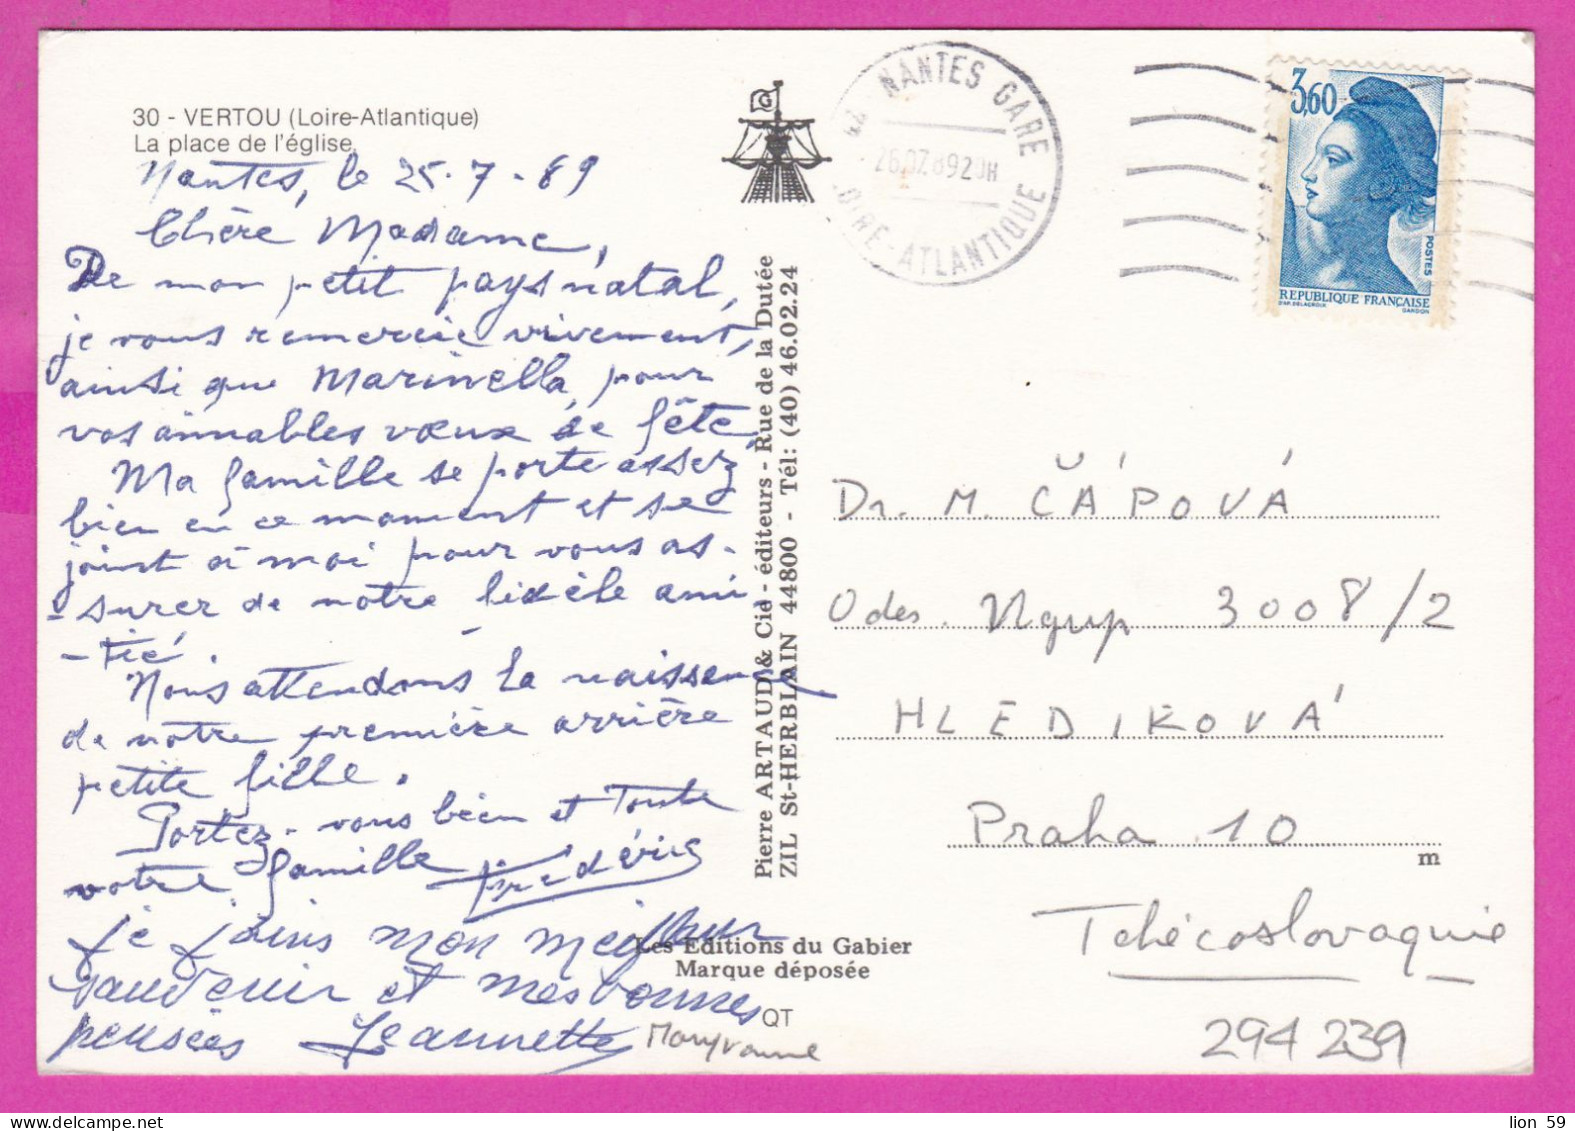 30 - VERTOU (Loire-Atlantique)
La place de l'église
Nantes, le 25-7-89
Chère Madame,
De mon petit pays natal,
je vous remercie vivement,
ainsi que Marinella, pour
vos aimables vœux de fête.
Ma famille se porte assez
bien en ce moment et se
joint à moi pour vous as-
-surer de notre fidèle ami
-tié.
Nous attendons la naissance
de notre première arrière
petite fille.
Portez-vous bien et toute
votre famille
Je joins mon meilleur
souvenir et mes bonnes
pensées Jeannette
Pierre ARTAUD & Cie - éditeurs - Rue de la Dutée
ZIL St-HERBLAIN 44800 - Tél: (40) 46.02.24
Les Editions du Gabier
Marque déposée
QT
44 NANTES GARE
LOIRE-ATLANTIQUE
3,60
POSTES
REPUBLIQUE FRANÇAISE
D'AP. DELACROIX GANDON
Dr. M. ČÁPOVÁ
Odes. 3008/2
HLEDIKOVÁ
Praha 10
m
Tchécoslovaquie
294 239
lion 59